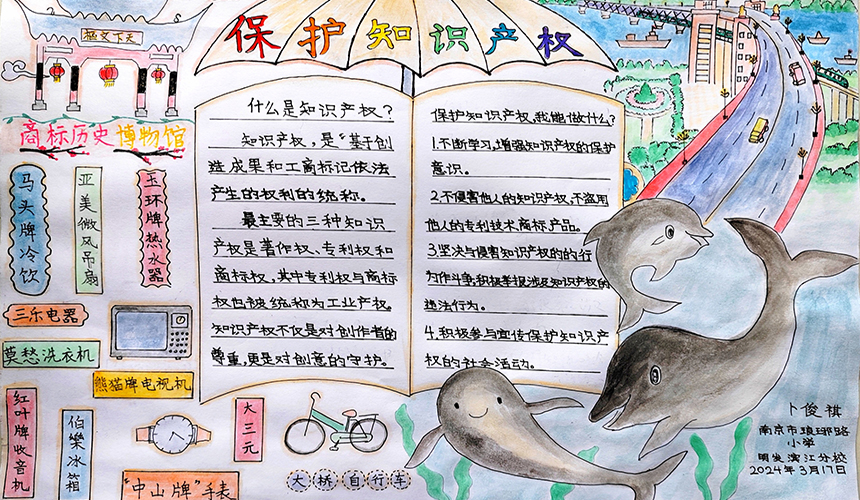 天下文枢
保护知识产权
商标历史博物馆
马头牌冷饮
亚美微风吊扇
玉环牌热水器
三乐电器
莫愁洗衣机
熊猫牌电视机
红叶牌收音机
伯乐冰箱
大三元
"中山牌"手表
大桥自行车
什么是知识产权?
知识产权,是"基于创
造成果和工商标记依法
产生的权利的统称。
最主要的三种知识
产权是著作权、专利权和
商标权,其中专利权与商标
权也被统称为工业产权。
知识产权不仅是对创作者的
尊重,更是对创意的守护。
保护知识产权,我能做什么?
1.不断学习,增强知识产权的保护
意识。
2.不侵害他人的知识产权,不盗用
他人的专利技术商标产品。
3.坚决与侵害知识产权的的行
为作斗争,积极举报涉及知识产权的
违法行为。
4.积极参与宣传保护知识产
权的社会活动。
卜俊祺
南京市琅琊路
小学
明发滨江分校
2024年3月17日